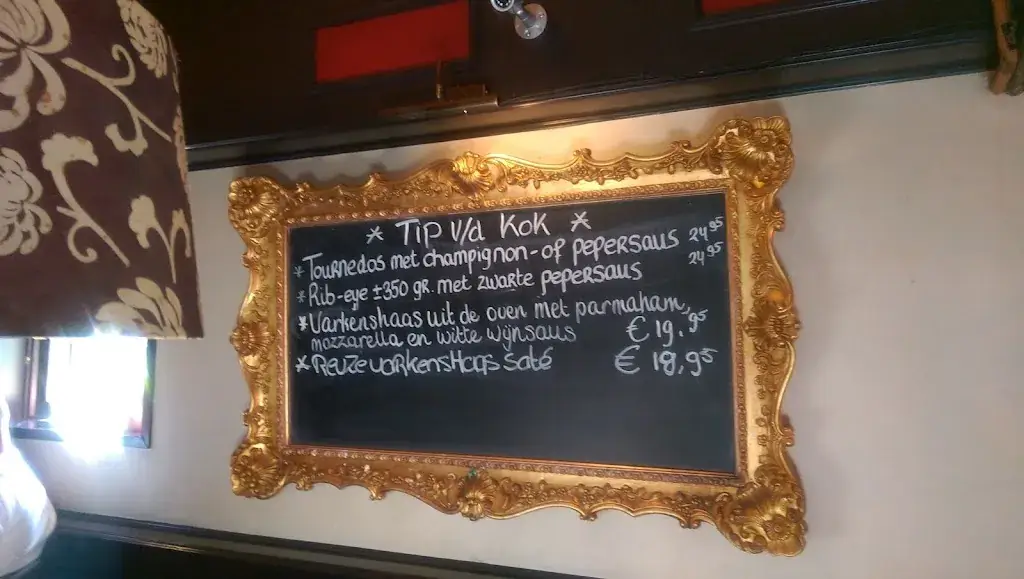 * Tip v/d Kok *
* Tournedos met champignon- of pepersaus 24,95
* Rib-eye ±350 gr. met zwarte pepersaus 24,95
* Varkenshaas uit de oven met parmaham,
mozzarella en witte wijnsaus € 19,95
* Reuze varkenshaas saté € 18,95